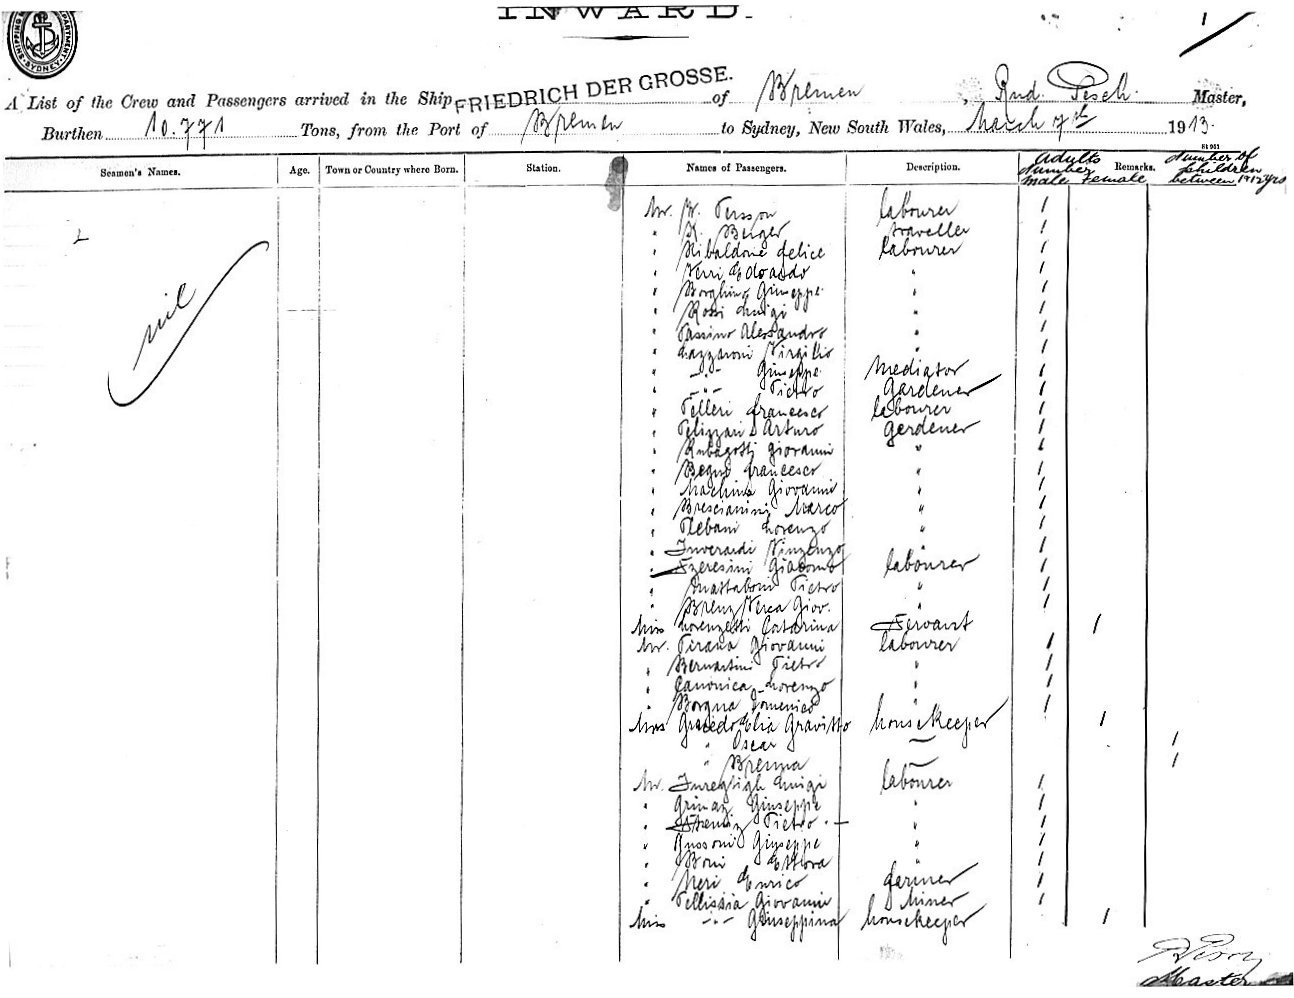 INWARD.
SHIPPING DEPARTMENT SYDNEY
A List of the Crew and Passengers arrived in the Ship FRIEDRICH DER GROSSE. of Bremen, Rud. Pesch. Master,
Burthen 10.771 Tons, from the Port of Bremen to Sydney, New South Wales, March 7th 1913.
Seamen's Names. Age. Town or Country where Born. Station. Names of Passengers. Description. Adults Number male female Remarks. Number of children between 1-12 yrs
nil
Mr. Persson labourer 1
" K. Berger traveller 1
" Ribaldone Felice labourer 1
" Verri Edoardo " 1
" Borghino Giuseppe " 1
" Rossi Luigi " 1
" Passino Alessandro " 1
" Lazzaroni Virgilio " 1
" -"- Giuseppe Mediator 1
" -"- Pietro Gardener 1
" Pelleri Francesco labourer 1
" Pelizzari Arturo Gerdener 1
" Rubagotti Giovanni " 1
" Francesco " 1
" Giovanni " 1
" Brescianini Marco " 1
" Plebani Lorenzo " 1
" Inverardi Vinzenzo " 1
" Giacomo labourer 1
" Pietro " 1
" Giov. " 1
Miss Lorenzetti Catarina Servant 1
Mr. Pirana Giovanni labourer 1
" Bernartini Pietro " 1
" Canonica Lorenzo " 1
" Borgna Domenico " 1
Mrs Elia Gravitto housekeeper 1
" Oscar — 1
" Brenna — 1
Mr. Luigi labourer 1
" Grimaz Giuseppe " 1
" Pietro " 1
" Giuseppe " 1
" Boni Ettora " 1
" Neri Enrico farmer 1
" Pellissia Giovanni Miner 1
Miss -"- Giuseppina housekeeper 1
Master